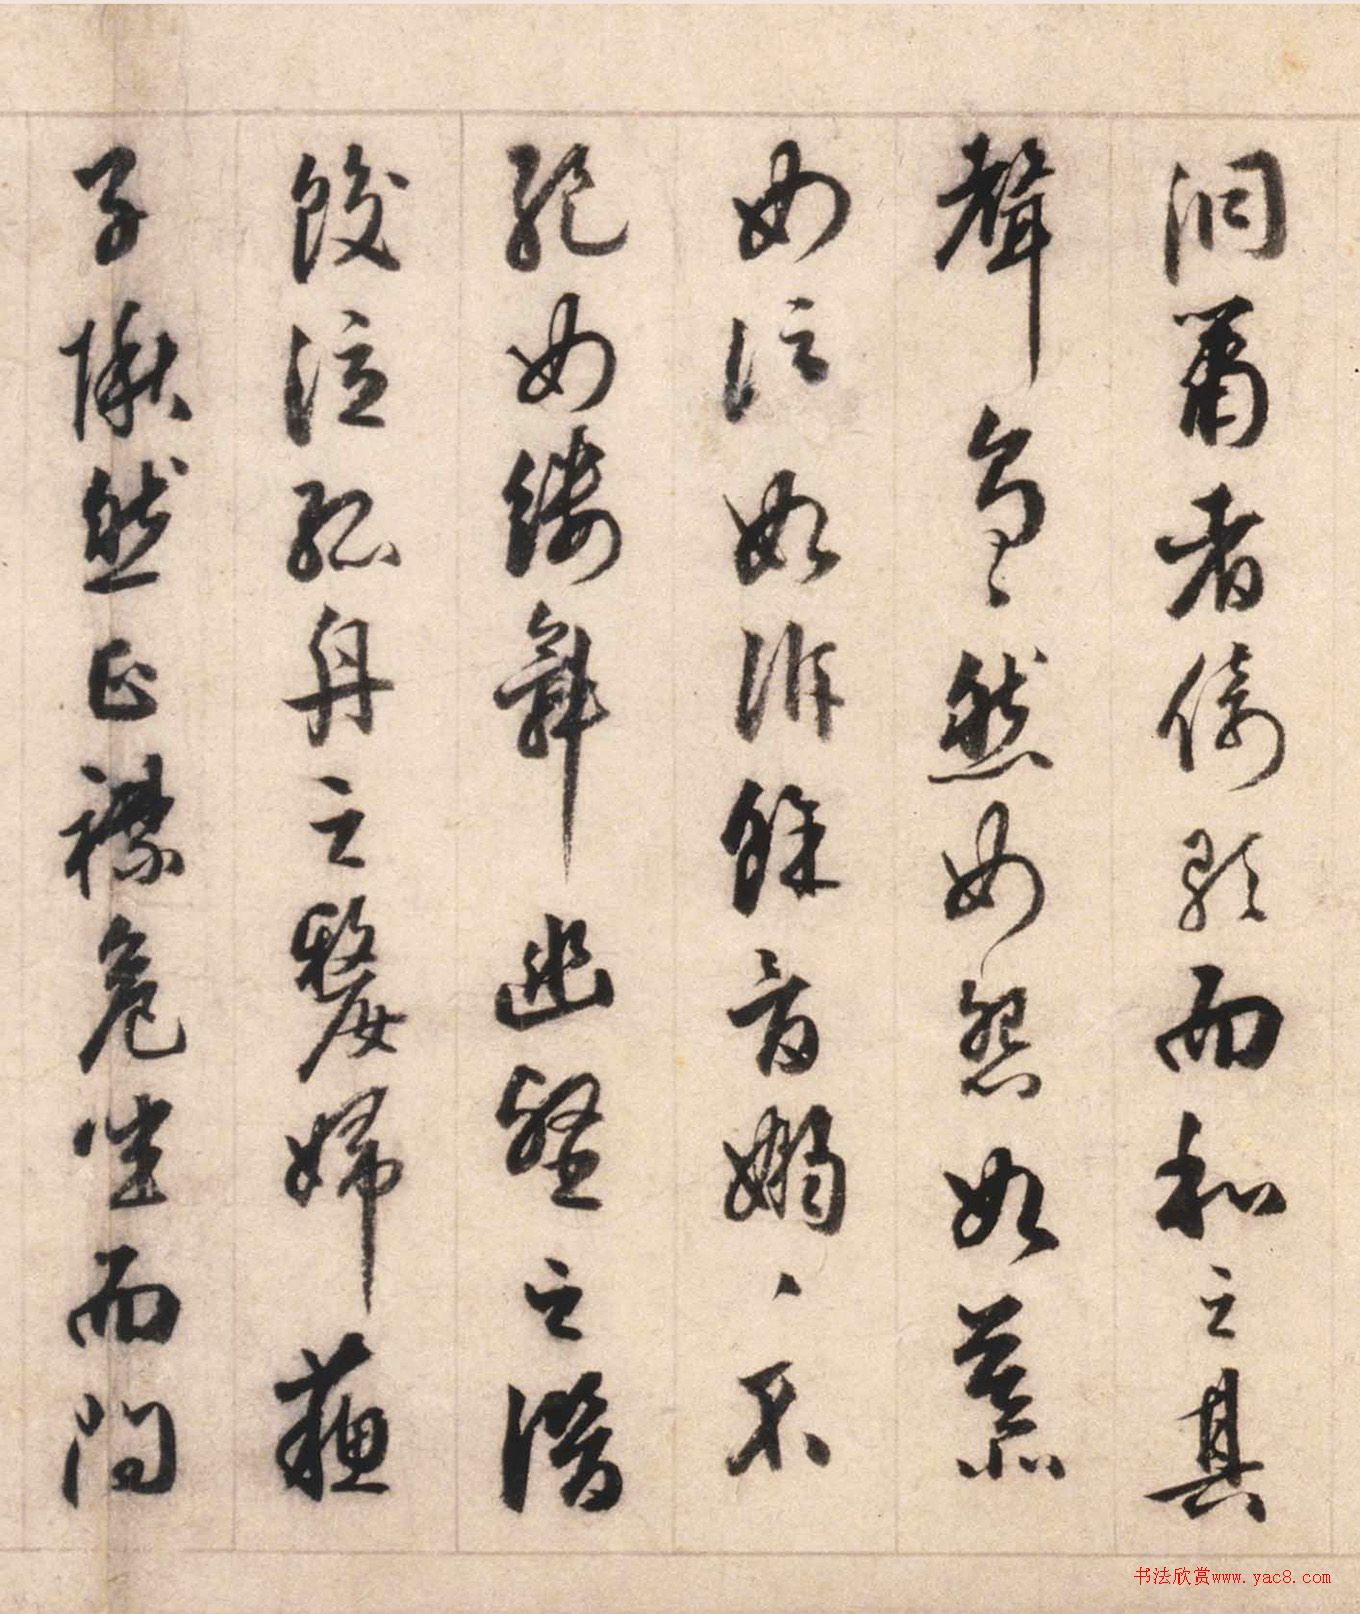 洞簫者倚歌而和之其
聲烏〻然如怨如慕
如泣如訴餘音嫋〻不
絶如縷舞幽壑之潛
蛟泣孤舟之嫠婦蘇
子愀然正襟危坐而問
书法欣赏www.yac8.com